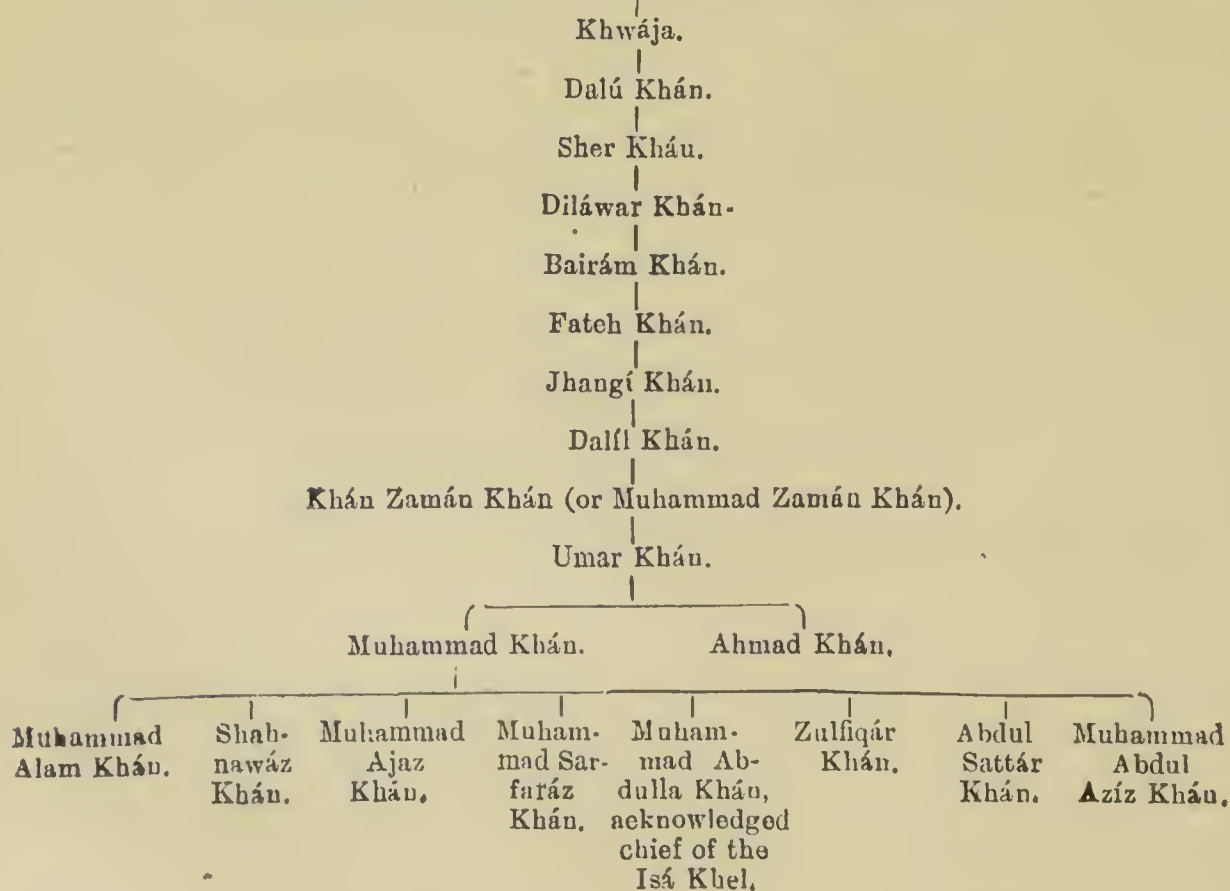 Khwája.
Dalú Khán.
Sher Kháu.
Diláwar Khán.
Bairám Khán.
Fateh Khán.
Jhangí Khán.
Dalíl Khán.
Khán Zamán Khán (or Muhammad Zamán Khán).
Umar Khán.
Muhammad Khán. Ahmad Khán.
Muhammad Alam Khán.
Shah-
nawáz
Khán.
Muhammad
Ajaz
Khán.
Muham-
mad Sar-
faráz
Khán.
Muham-
mad Ab-
dulla Khán,
acknowledged
chief of the
Isá Khel.
Zulfiqár
Khán.
Abdul
Sattár
Khán.
Muhammad
Abdul
Azíz Khán.